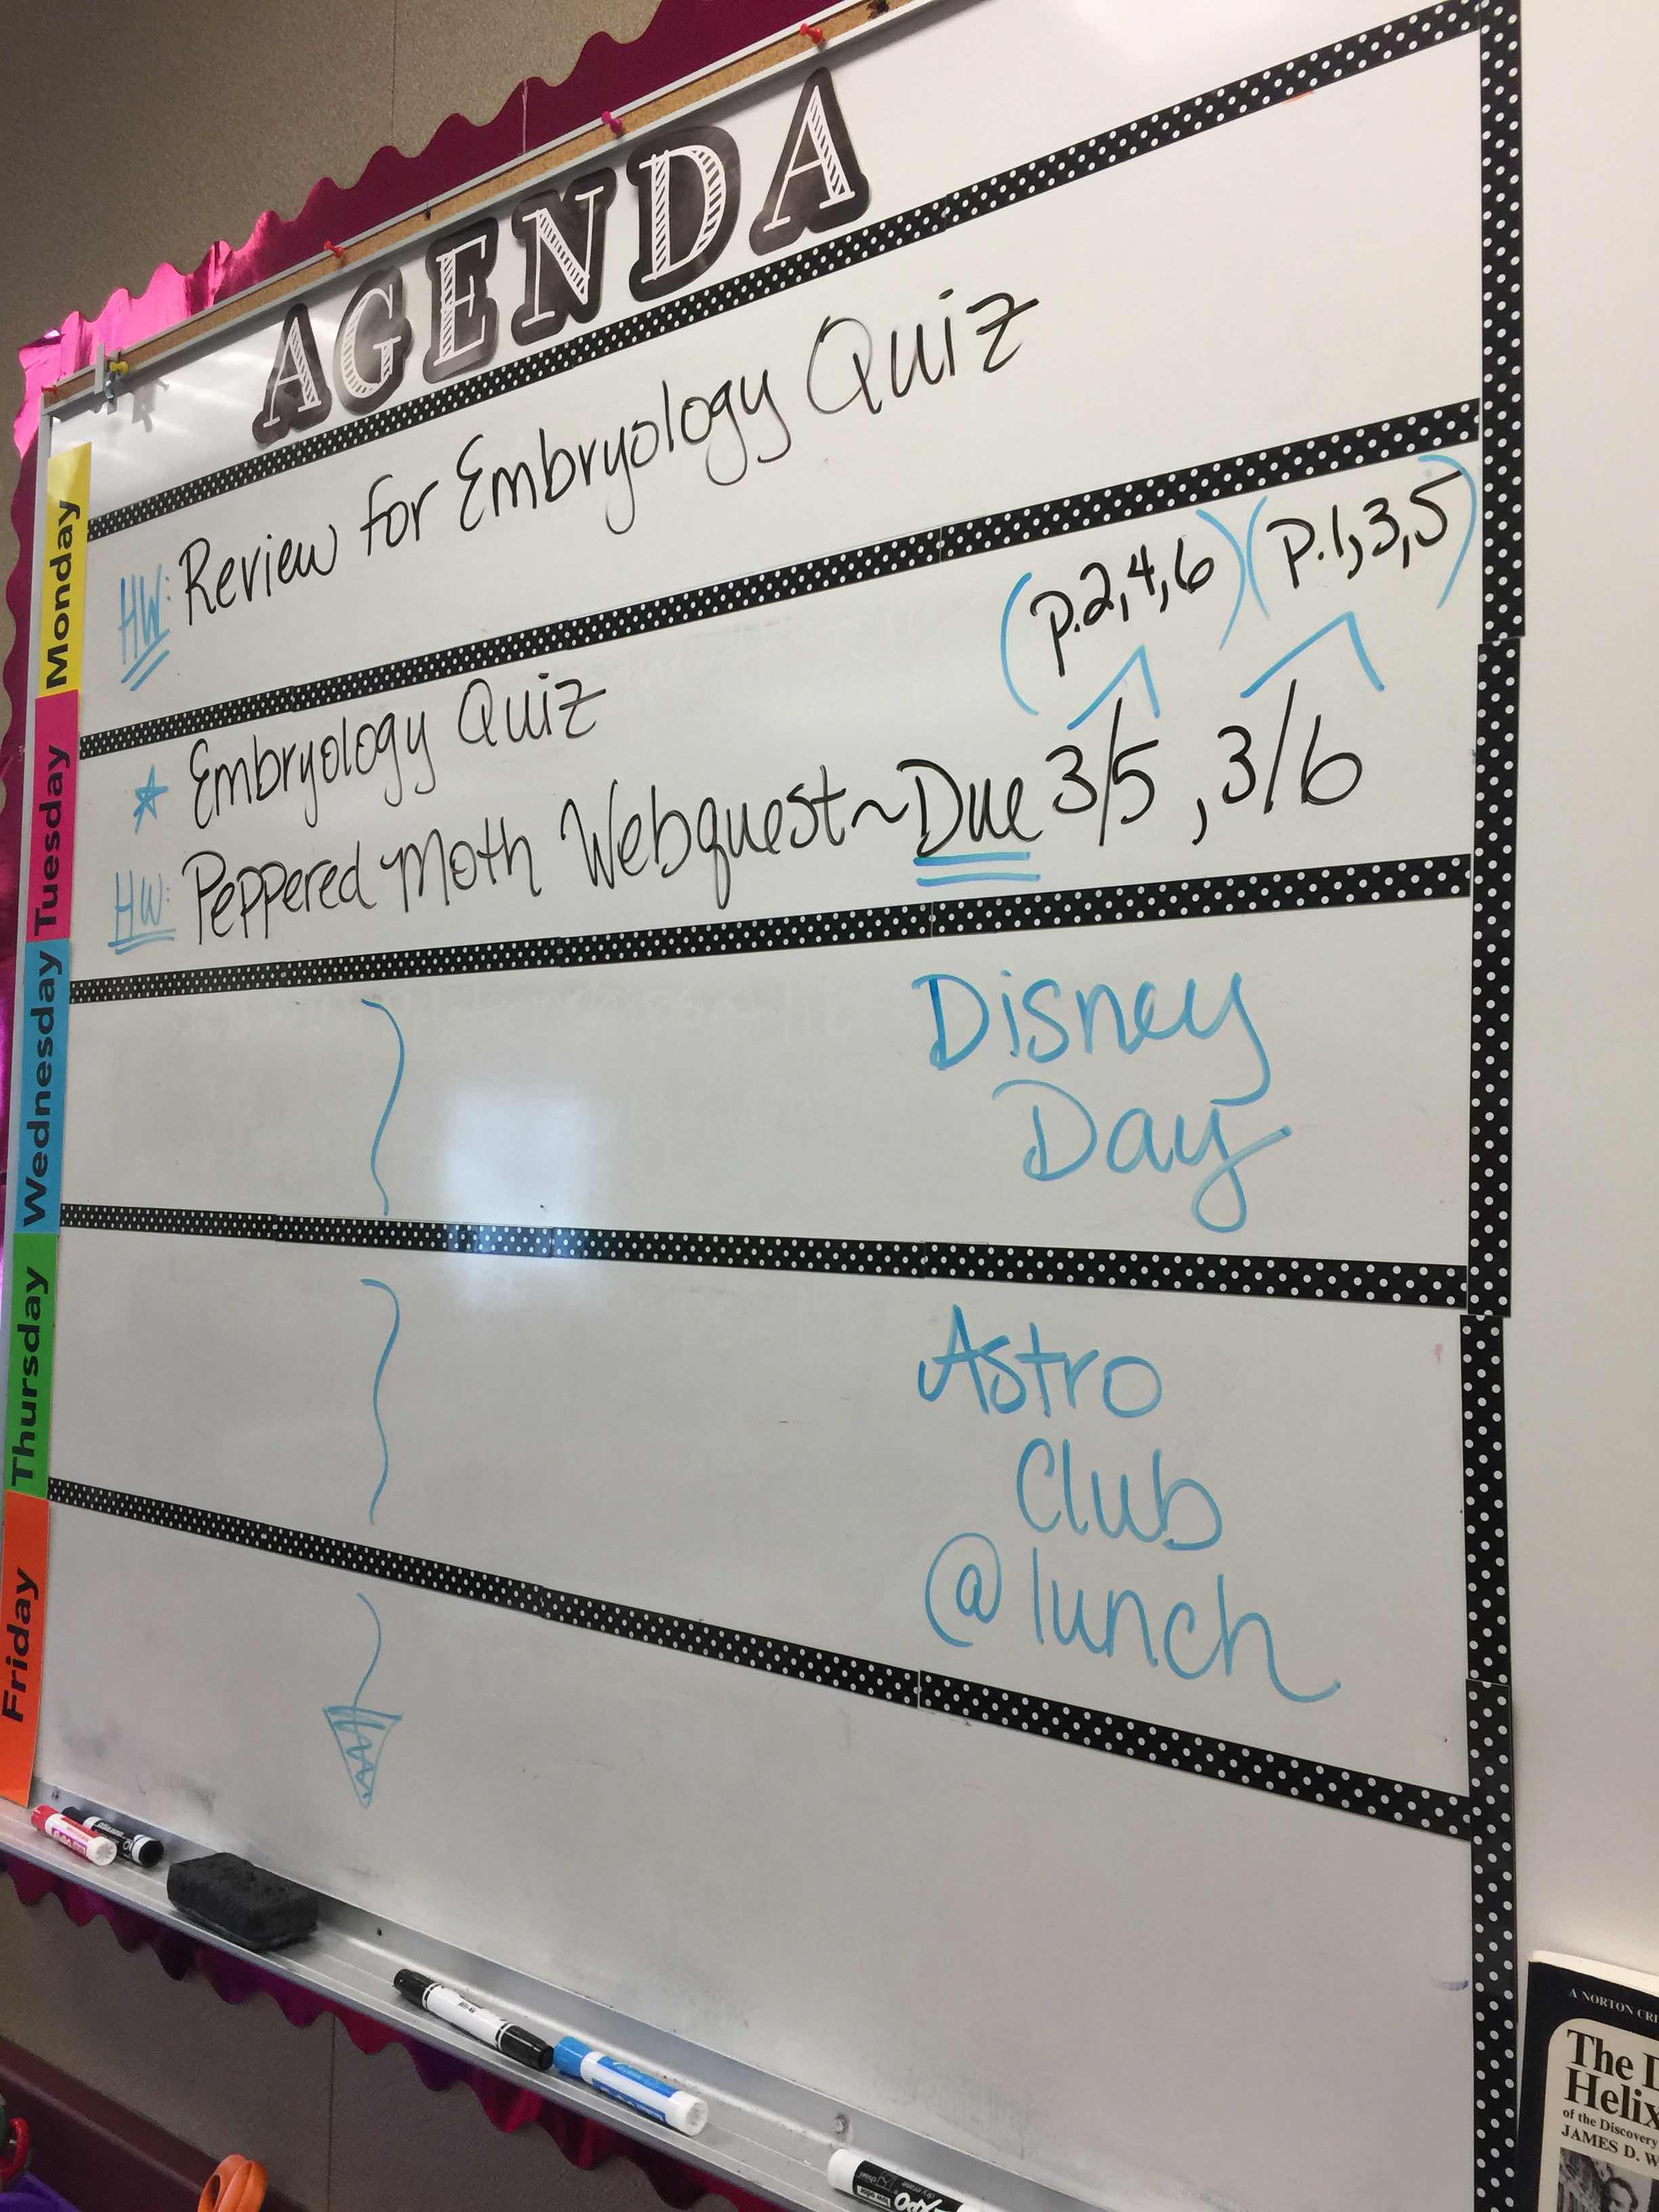 AGENDA
Monday
HW: Review for Embryology Quiz
Tuesday
Embryology Quiz
(p.2,4,6) (p.1,3,5)
HW: Peppered Moth Webquest ~ Due 3/5, 3/6
Wednesday
Disney
Day
Thursday
Astro
Club
@ lunch
Friday
A NORTON CRI
The D
Helix
of the Discovery
JAMES D. W
EXPO